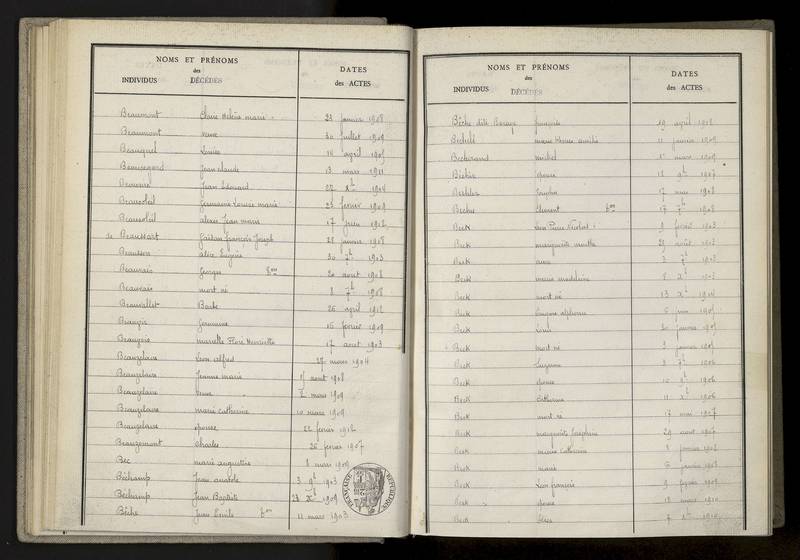 NOMS ET PRÉNOMS
des
INDIVIDUS DÉCÉDÉS
DATES
des ACTES
Beaumont Claire Hélène marie 23 janvier 1908
Beaumont veuve 30 juillet 1909
Beauquel Louise 14 avril 1905
Beauregard Jean claude 13 mars 1911
Jean Edouard 22 Xb 1904
Beausoleil Germaine Louise marie 23 février 1909
Beausoleil alexis Jean marie 17 juin 1912
de Beaussart Gaëtan françois Joseph 28 janvier 1908
Beausson alice Eugénie 30 7b 1903
Beauvais Georges bon 20 aout 1908
Beauvais mort né 8 7b 1908
Beauvallet Barbe 26 avril 1912
Beaugis Germaine 16 février 1909
Beaugeois marcelle Flore Henriette 17 aout 1903
Beauzelaire Léon alfred 27 mars 1904
Beauzelaire Jeanne marie aout 1908
Beauzelaire veuve 2 mars 1909
Beauzelaire marie catherine 10 mars 1909
Beauzelaire épouse 22 février 1912
Beauzemont charles 26 février 1907
Béc marie augustine 8 mars 1909
Béchamp Jean anatole 3 9b 1903
Béchamp Jean Baptiste 23 Xb 1909
Bêche Jean Emile bon 11 mars 1903
NOMS ET PRÉNOMS
des
INDIVIDUS DÉCÉDÉS
DATES
des ACTES
Bêche dite françoise 19 avril 1912
marie Thérèse 11 janvier 1909
michel 1er mars 1909
épouse 12 9b 1907
Joséphine 17 mars 1908
Becker Clément bon 17 7b 1908
Beck Jean Pierre Nicolas 9 février 1903
Beck marguerite marthe 29 août 1903
Beck anna 3 7b 1903
Beck marie madeleine 8 Xb 1903
Beck mort né 13 Xb 1904
Beck Eugène alphonse 6 juin 1905
Beck Louis 20 janvier 1905
Beck mort né 9 janvier 1905
Beck Suzanne 3 7b 1906
Beck épouse 10 9b 1906
Beck Catherine 11 Xb 1906
Beck mort né 17 mai 1907
Beck marguerite Joséphine 29 aout 1907
Beck marie Catherine 8 janvier 1908
Beck marie 6 janvier 1908
Beck Léon françois 9 février 1909
Beck épouse 18 mars 1910
Beck 7 Xb 1910